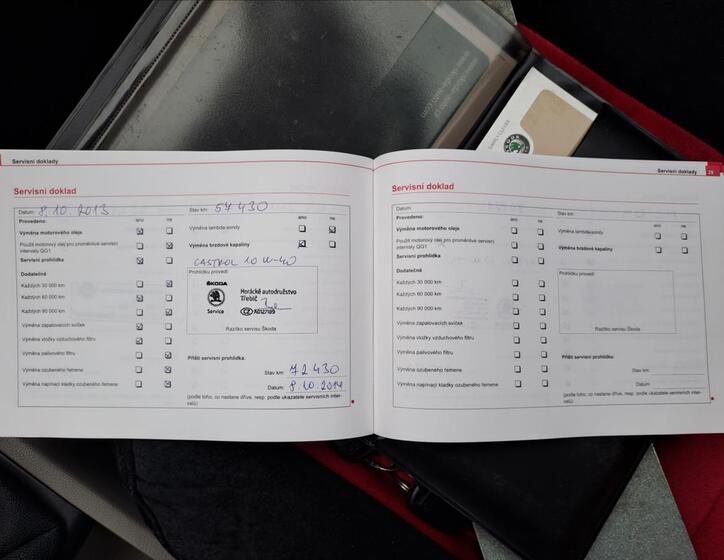 Servisní doklady
Servisní doklad
Datum: 8.10.2013
Stav km: 57 430
Provedeno:
ano
ne
ano
ne
Výměna motorového oleje
Výměna lambda-sondy
Použit motorový olej pro proměnlivé servisní
intervaly QG1
Výměna brzdové kapaliny
Servisní prohlídka
CASTROL 10W-40
Dodatečně
Prohlídku provedl:
Každých 30 000 km
Každých 60 000 km
Každých 90 000 km
ŠKODA
Service
Horácké autodružstvo
Třebíč
Výměna zapalovacích svíček
Razítko servisu Škoda
Výměna vložky vzduchového filtru
Výměna palivového filtru
Příští servisní prohlídka:
Výměna ozubeného řemene
Stav km: 72 430
Výměna napínací kladky ozubeného řemene
Datum: 8.10.2014
(podle toho, co nastane dříve, resp. podle ukazatele servisních inter-
valů)
Servisní doklady
29
Servisní doklad
Datum:
Stav km:
Provedeno:
ano
ne
ano
ne
Výměna motorového oleje
Výměna lambda-sondy
Použit motorový olej pro proměnlivé servisní
intervaly QG1
Výměna brzdové kapaliny
Servisní prohlídka
Dodatečně
Prohlídku provedl:
Každých 30 000 km
Každých 60 000 km
Každých 90 000 km
Výměna zapalovacích svíček
Razítko servisu Škoda
Výměna vložky vzduchového filtru
Výměna palivového filtru
Příští servisní prohlídka:
Výměna ozubeného řemene
Stav km:
Výměna napínací kladky ozubeného řemene
Datum:
(podle toho, co nastane dříve, resp. podle ukazatele servisních inter-
valů)